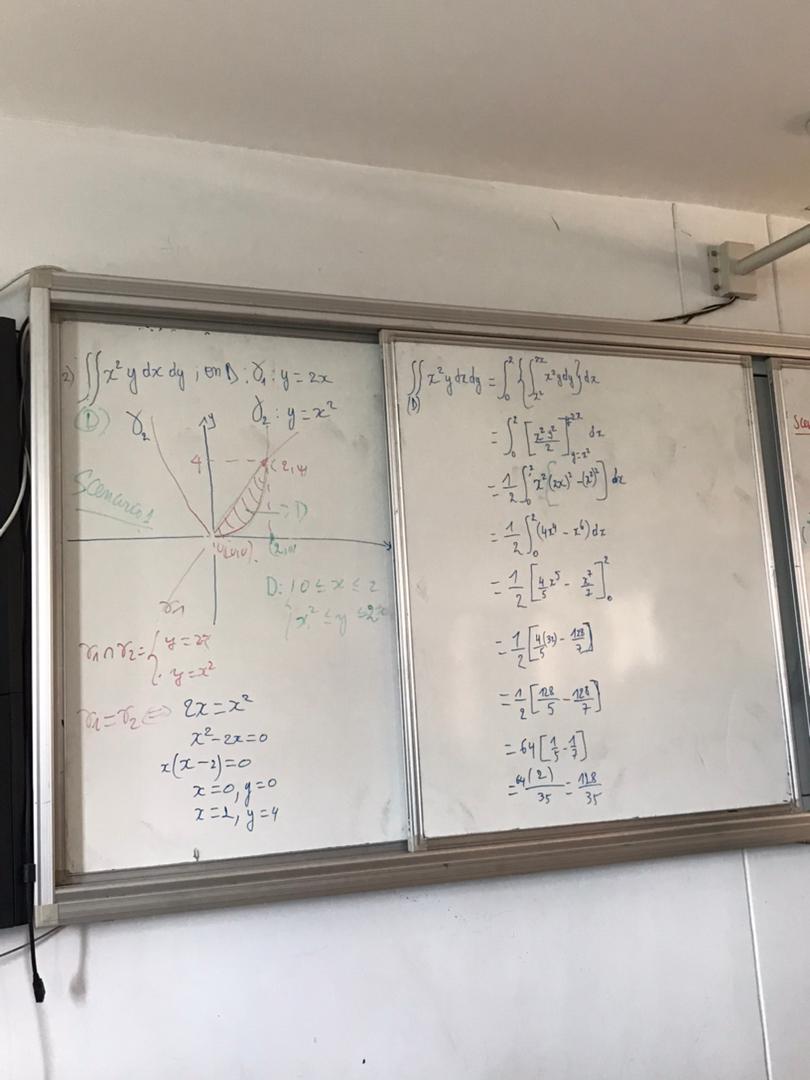 2) ∬ x² y dx dy ; on D: γ₁ : y = 2x
(D)
γ₂ : y = x²
γ₂
y
4
(2,4)
Scenario 1
= D
(0,0)
(2,0)
γ₁
D: { 0 ≤ x ≤ 2
x² ≤ y ≤ 2x
γ₁ ∩ γ₂ = { y = 2x
y = x²
γ₁ = γ₂ ⇔ 2x = x²
x² - 2x = 0
x(x - 2) = 0
x = 0, y = 0
x = 1, y = 4
∬ x² y dx dy = ∫₀² { ∫_{x²}^{2x} x² y dy } dx
(D)
= ∫₀² [ x² y² / 2 ]_{y=x²}^{2x} dx
= 1/2 ∫₀² x² { (2x)² - (x²)² } dx
= 1/2 ∫₀² (4x⁴ - x⁶) dx
= 1/2 [ 4/5 x⁵ - x⁷/7 ]₀²
= 1/2 [ 4(32)/5 - 128/7 ]
= 1/2 [ 128/5 - 128/7 ]
= 64 [ 1/5 - 1/7 ]
= 64(2)/35 = 128/35